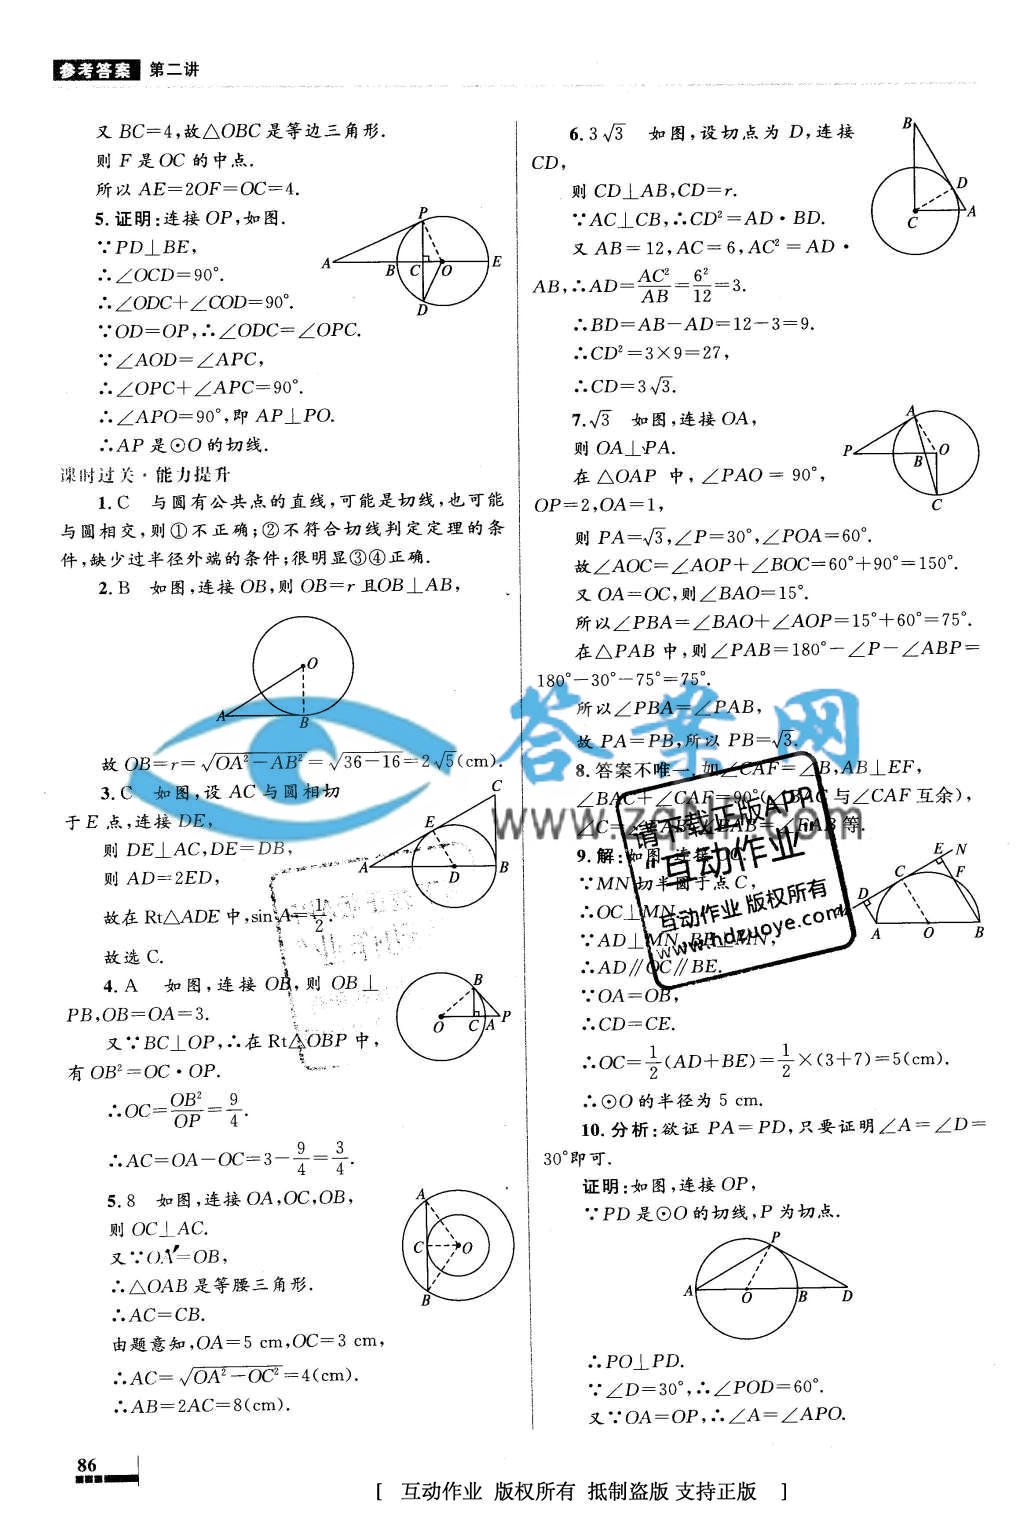 参考答案 第二讲
又 BC=4,故△OBC 是等边三角形.
则 F 是 OC 的中点.
所以 AE=2OF=OC=4.
5.证明:连接 OP,如图.
∵PD⊥BE,
∴∠OCD=90°.
∴∠ODC+∠COD=90°.
∵OD=OP,∴∠ODC=∠OPC.
∵∠AOD=∠APC,
∴∠OPC+∠APC=90°.
∴∠APO=90°,即 AP⊥PO.
∴AP 是⊙O 的切线.
P
A B C O E
D
课时过关·能力提升
1.C 与圆有公共点的直线,可能是切线,也可能
与圆相交,则①不正确;②不符合切线判定定理的条
件,缺少过半径外端的条件;很明显③④正确.
2.B 如图,连接 OB,则 OB=r 且OB⊥AB,
O
A B
故 OB=r=√(OA²−AB²)=√(36−16)=2√5(cm).
3.C 如图,设 AC 与圆相切
于 E 点,连接 DE,
则 DE⊥AC,DE=DB,
则 AD=2ED,
故在 Rt△ADE 中,sin A=1/2.
故选 C.
C
E
A D B
4.A 如图,连接 OB,则 OB⊥
PB,OB=OA=3.
又∵BC⊥OP,∴在 Rt△OBP 中,
有 OB²=OC·OP.
∴OC=OB²/OP=9/4.
∴AC=OA−OC=3−9/4=3/4.
B
O C A P
5.8 如图,连接 OA,OC,OB,
则 OC⊥AC.
又∵OA=OB,
∴△OAB 是等腰三角形.
∴AC=CB.
由题意知,OA=5 cm,OC=3 cm,
∴AC=√(OA²−OC²)=4(cm).
∴AB=2AC=8(cm).
A
C O
B
6.3√3 如图,设切点为 D,连接
CD,
则 CD⊥AB,CD=r.
∵AC⊥CB,∴CD²=AD·BD.
又 AB=12,AC=6,AC²=AD·
AB,∴AD=AC²/AB=6²/12=3.
∴BD=AB−AD=12−3=9.
∴CD²=3×9=27,
∴CD=3√3.
B
D
C A
7.√3 如图,连接 OA,
则 OA⊥PA.
在△OAP 中,∠PAO=90°,
OP=2,OA=1,
则 PA=√3,∠P=30°,∠POA=60°.
故∠AOC=∠AOP+∠BOC=60°+90°=150°.
又 OA=OC,则∠BAO=15°.
所以∠PBA=∠BAO+∠AOP=15°+60°=75°.
在△PAB 中,则∠PAB=180°−∠P−∠ABP=
180°−30°−75°=75°.
所以∠PBA=∠PAB,
故 PA=PB,所以 PB=√3.
A
P B O
C
8.答案不唯一.如∠CAF=∠B,AB⊥EF,
∠BAC+∠CAF=90°(∠BAC 与∠CAF 互余),
∠C=∠ ∠BAB=∠EAB 等.
9.解:如图,连接 OC.
∵MN 切半圆于点 C,
∴OC⊥MN.
∵AD⊥MN,BE⊥MN,
∴AD∥OC∥BE.
∵OA=OB,
∴CD=CE.
∴OC=1/2(AD+BE)=1/2×(3+7)=5(cm).
∴⊙O 的半径为 5 cm.
E N
C F
D
A O B
10.分析:欲证 PA=PD,只要证明∠A=∠D=
30°即可.
证明:如图,连接 OP,
∵PD 是⊙O 的切线,P 为切点.
P
A O B D
∴PO⊥PD.
∵∠D=30°,∴∠POD=60°.
又∵OA=OP,∴∠A=∠APO.
答案网
请下载正版APP
“互动作业”
互动作业 版权所有
www.hdzuoye.com
86
[ 互动作业 版权所有 抵制盗版 支持正版 ]